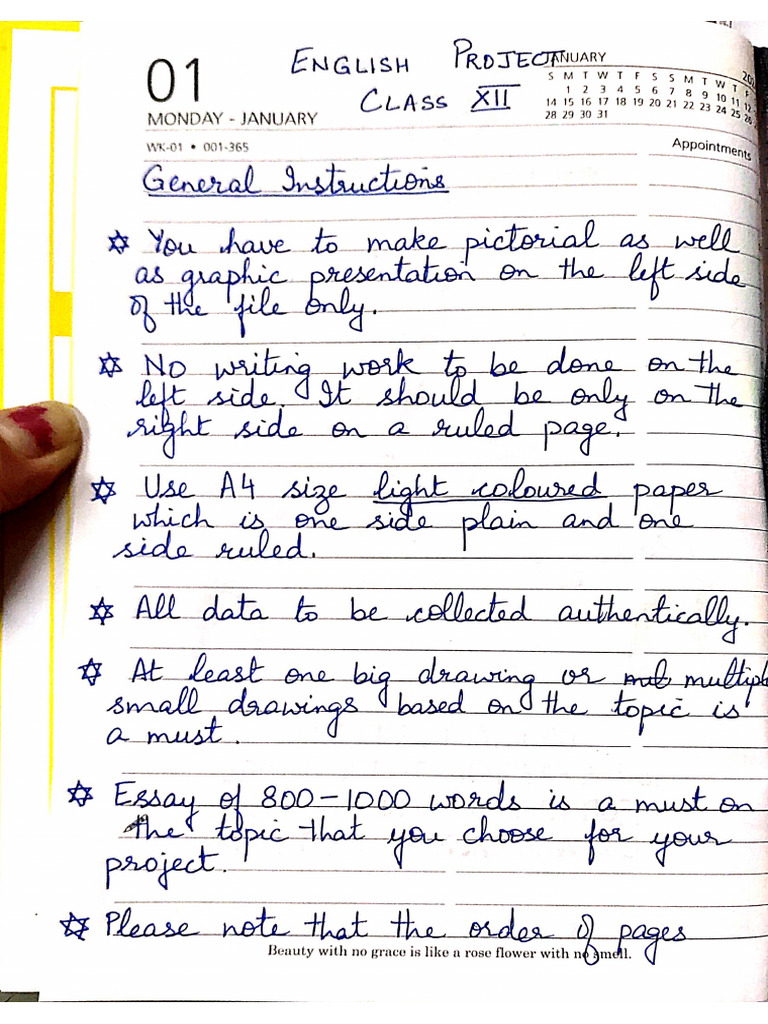 ENGLISH PROJECT
CLASS XII
01
MONDAY - JANUARY
JANUARY
S M T W T F S S M T W T F
1 2 3 4 5 6 7 8 9 10 11 12
14 15 16 17 18 19 20 21 22 23 24 25 26
28 29 30 31
WK-01 • 001-365
Appointments
General Instructions
✡ You have to make pictorial as well
as graphic presentation on the left side
of the file only.
✡ No writing work to be done on the
left side. It should be only on the
right side on a ruled page.
✡ Use A4 size light coloured paper
which is one side plain and one
side ruled.
✡ All data to be collected authentically.
✡ At least one big drawing or multipl
small drawings based on the topic is
a must.
✡ Essay of 800-1000 words is a must on
the topic that you choose for your
project.
✡ Please note that the order of pages
Beauty with no grace is like a rose flower with no smell.